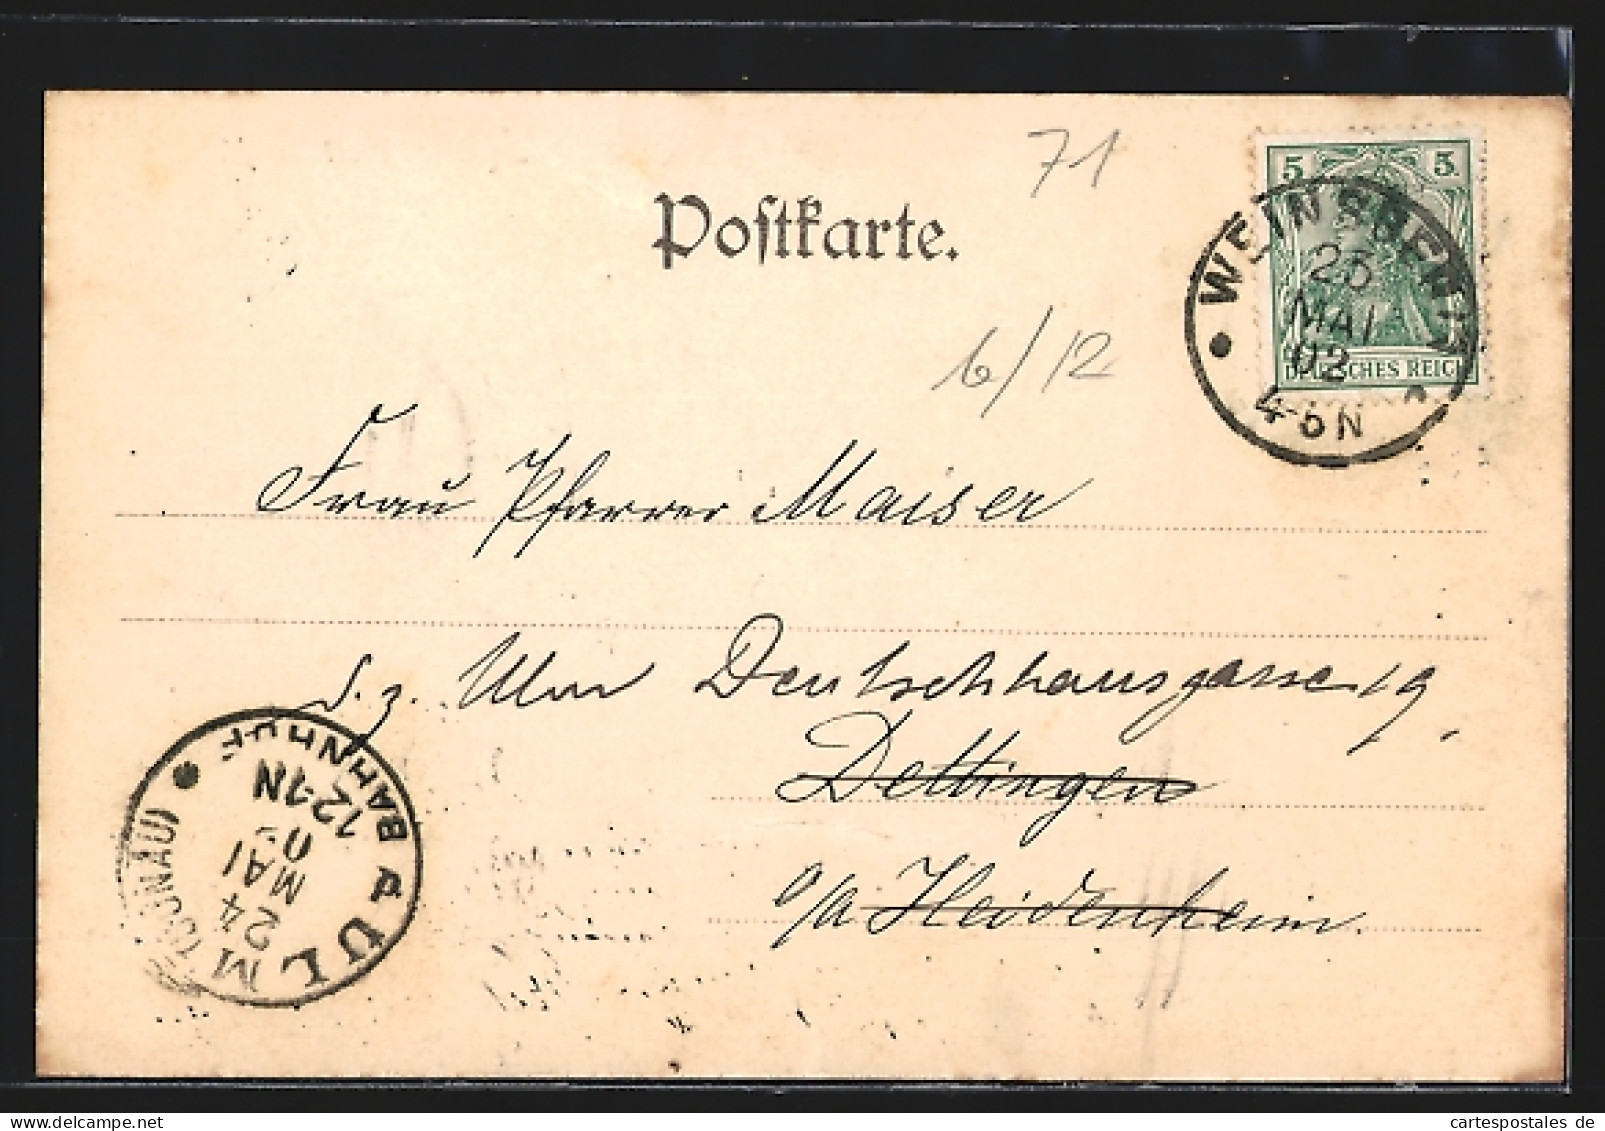 71
Postkarte.
5 5
DEUTSCHES REICH
WEINSBERG
MAI
02
4-5N
6/12
Frau Pfarrer Maiser
d. z. Ulm Deutschhausgasse 19.
Dettingen
o/a Heidenheim.
ULM (DONAU)
BAHNHOF
24
MAI
12-1N
cartespostales de